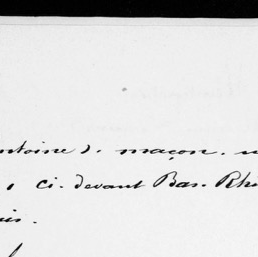 ntoine). maçon.
, ci-devant Bas-Rhi
is.